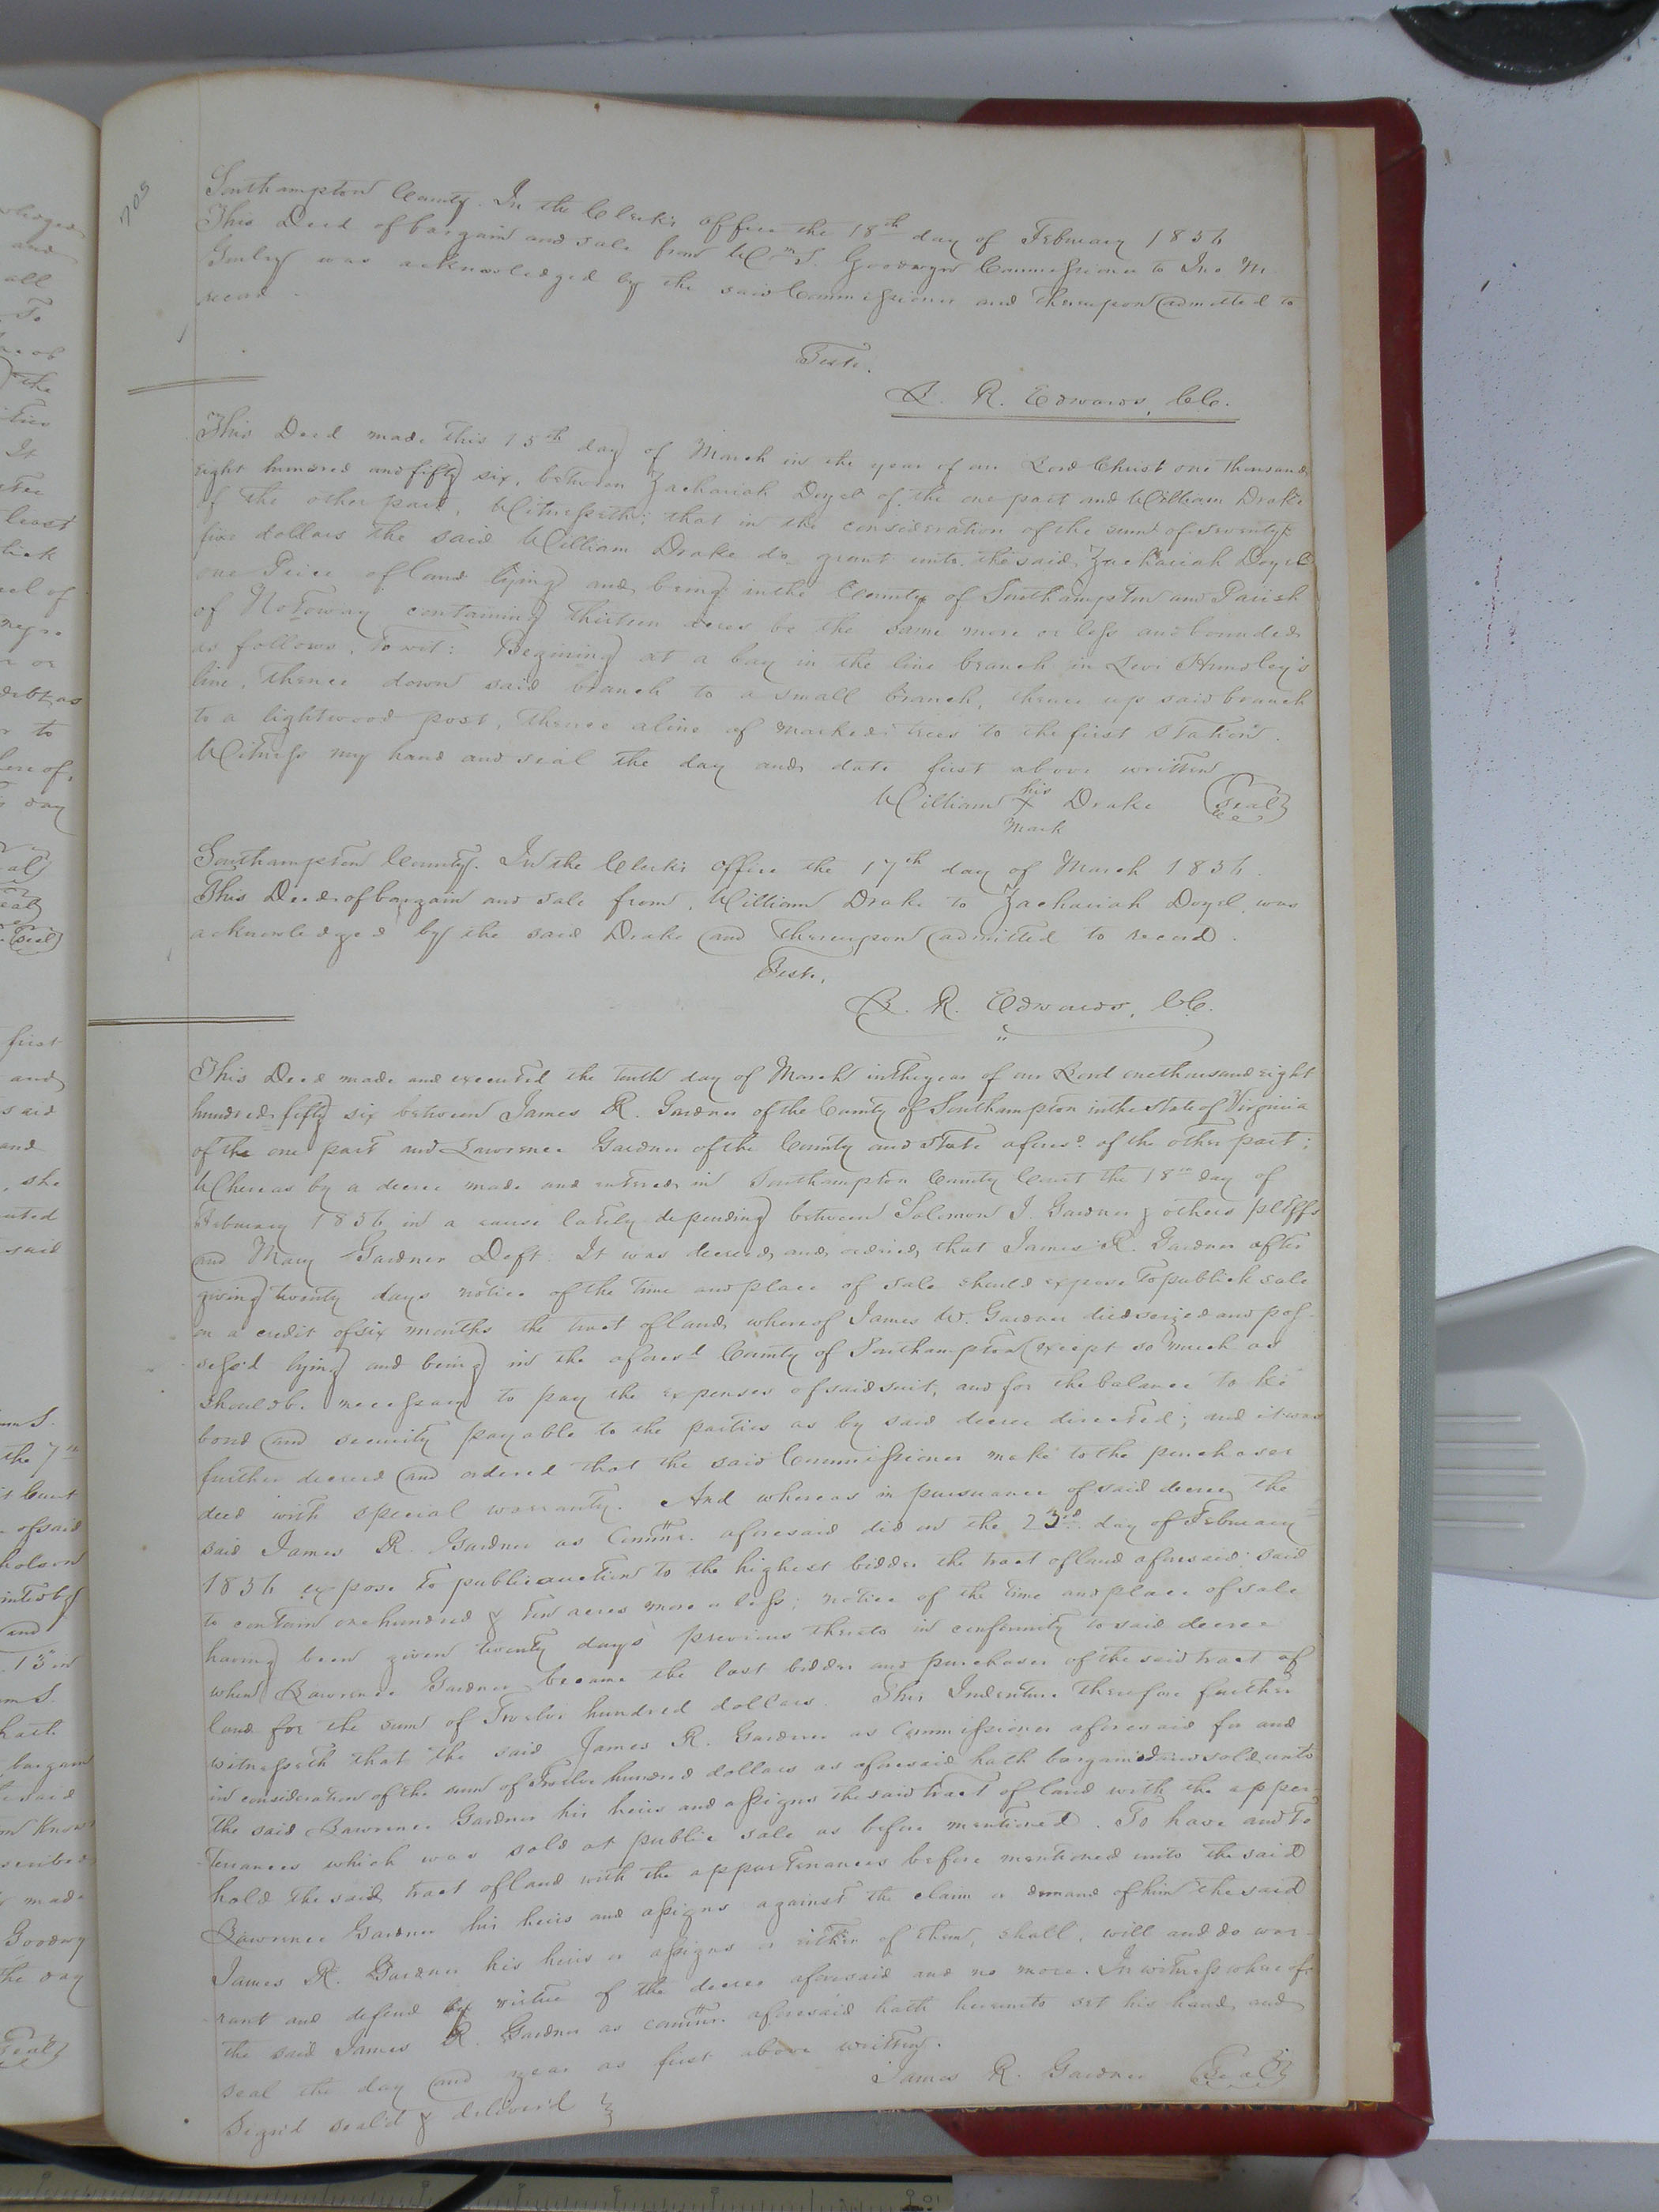 703
Southampton County. In the Clerk's office the 18th day of February 1856
This Deed of bargain and sale from Wm S. Goodwyn Commissioner to Jno. M.
Gurley was acknowledged by the said Commissioner and thereupon admitted to
record.
Teste.
L. R. Edwards, CC.
This Deed made this 15th day of March in the year of our Lord Christ one thousand
eight hundred and fifty six, between Zachariah Doyel of the one part and William Drake
of the other part, Witnesseth; that in the consideration of the sum of seventy
five dollars the said William Drake do grant unto the said Zachariah Doyel
one Peice of land lying and being in the County of Southampton and Parish
of Notoway containing thirteen acres be the same more or less and bounded
as follows, to wit: Begining at a bay in the line branch in Levi Hundley's
line, thence down said branch to a small branch, thence up said branch
to a lightwood post, thence a line of marked trees to the first station.
Witness my hand and seal the day and date first above written
William his X mark Drake (seal)
Southampton County. In the Clerk's office the 17th day of March 1856.
This Deed of bargain and sale from William Drake to Zachariah Doyel was
acknowledged by the said Drake and thereupon admitted to record.
Teste,
L. R. Edwards, CC.
This Deed made and executed the tenth day of March in the year of our Lord one thousand eight
hundred fifty six between James R. Gardner of the County of Southampton in the State of Virginia
of the one part and Lawrence Gardner of the County and State aforesd of the other part;
Whereas by a decree made and entered in Southampton County Court the 18th day of
February 1856 in a cause lately depending between Solomon J. Gardner & others pltffs
and Mary Gardner Deft. It was decreed and ordered that James R. Gardner after
giving twenty days notice of the time and place of sale should expose to publick sale
on a credit of six months the tract of land whereof James W. Gardner died seized and pos-
sess'd lying and being in the aforesd County of Southampton except so much as
should be necessary to pay the expenses of said suit, and for the balance to ke
bond and security payable to the parties as by said decree directed; and it was
further decreed and ordered that the said Commissioner make to the purchaser
deed with special warranty. And whereas in pursuance of said decree the
said James R. Gardner as Commr. aforesaid did on the 23rd day of February
1856 expose to public auction to the highest bidder the tract of land aforesaid said
to contain one hundred & ten acres more or less; notice of the time and place of sale
having been given twenty days previous thereto in conformity to said decree
when Lawrence Gardner became the last bidder and purchaser of the said tract of
land for the sum of Twelve hundred dollars. This Indenture therefore further
witnesseth that the said James R. Gardner as Commissioner aforesaid for and
in consideration of the sum of Twelve hundred dollars as aforesaid hath bargained and sold unto
the said Lawrence Gardner his heirs and assigns the said tract of land with the apper-
tenances which was sold at public sale as before mentioned. To have and to
hold the said tract of land with the appurtenances before mentioned unto the said
Lawrence Gardner his heirs and assigns against the claim or demand of him the said
James R. Gardner his heirs or assigns or either of them, shall, will and do war-
rant and defend by virtue of the decree aforesaid and no more. In witness whereof
the said James R. Gardner as commr. aforesaid hath hereunto set his hand and
seal the day and year as first above written.
James R. Gardner (Seal)
Sign'd seal'd & deliver'd